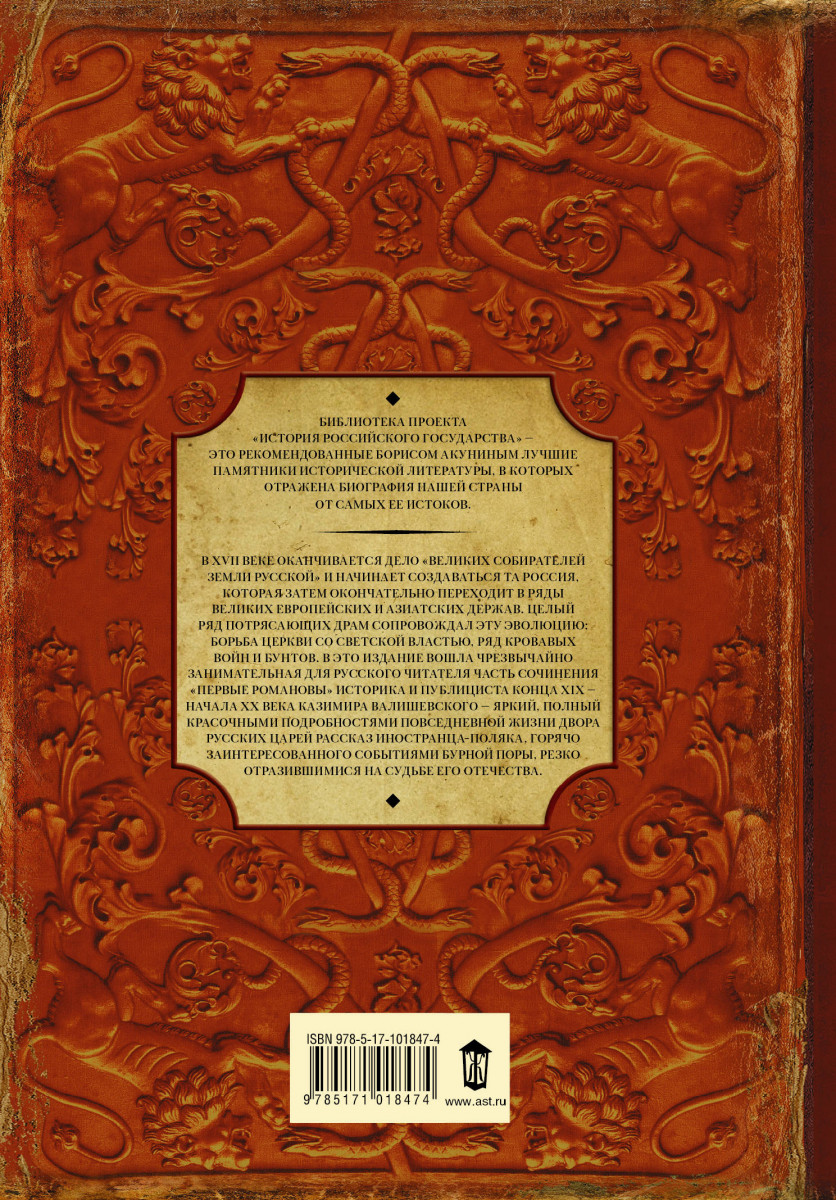 БИБЛИОТЕКА ПРОЕКТА
«ИСТОРИЯ РОССИЙСКОГО ГОСУДАРСТВА» –
ЭТО РЕКОМЕНДОВАННЫЕ БОРИСОМ АКУНИНЫМ ЛУЧШИЕ
ПАМЯТНИКИ ИСТОРИЧЕСКОЙ ЛИТЕРАТУРЫ, В КОТОРЫХ
ОТРАЖЕНА БИОГРАФИЯ НАШЕЙ СТРАНЫ
ОТ САМЫХ ЕЕ ИСТОКОВ.
В XVII ВЕКЕ ОКАНЧИВАЕТСЯ ДЕЛО «ВЕЛИКИХ СОБИРАТЕЛЕЙ
ЗЕМЛИ РУССКОЙ» И НАЧИНАЕТ СОЗДАВАТЬСЯ ТА РОССИЯ,
КОТОРАЯ ЗАТЕМ ОКОНЧАТЕЛЬНО ПЕРЕХОДИТ В РЯДЫ
ВЕЛИКИХ ЕВРОПЕЙСКИХ И АЗИАТСКИХ ДЕРЖАВ. ЦЕЛЫЙ
РЯД ПОТРЯСАЮЩИХ ДРАМ СОПРОВОЖДАЛ ЭТУ ЭВОЛЮЦИЮ:
БОРЬБА ЦЕРКВИ СО СВЕТСКОЙ ВЛАСТЬЮ, РЯД КРОВАВЫХ
ВОЙН И БУНТОВ. В ЭТО ИЗДАНИЕ ВОШЛА ЧРЕЗВЫЧАЙНО
ЗАНИМАТЕЛЬНАЯ ДЛЯ РУССКОГО ЧИТАТЕЛЯ ЧАСТЬ СОЧИНЕНИЯ
«ПЕРВЫЕ РОМАНОВЫ» ИСТОРИКА И ПУБЛИЦИСТА КОНЦА XIX –
НАЧАЛА XX ВЕКА КАЗИМИРА ВАЛИШЕВСКОГО – ЯРКИЙ, ПОЛНЫЙ
КРАСОЧНЫМИ ПОДРОБНОСТЯМИ ПОВСЕДНЕВНОЙ ЖИЗНИ ДВОРА
РУССКИХ ЦАРЕЙ РАССКАЗ ИНОСТРАНЦА-ПОЛЯКА, ГОРЯЧО
ЗАИНТЕРЕСОВАННОГО СОБЫТИЯМИ БУРНОЙ ПОРЫ, РЕЗКО
ОТРАЗИВШИМИСЯ НА СУДЬБЕ ЕГО ОТЕЧЕСТВА.
ISBN 978-5-17-101847-4
9 785171 018474
www.ast.ru